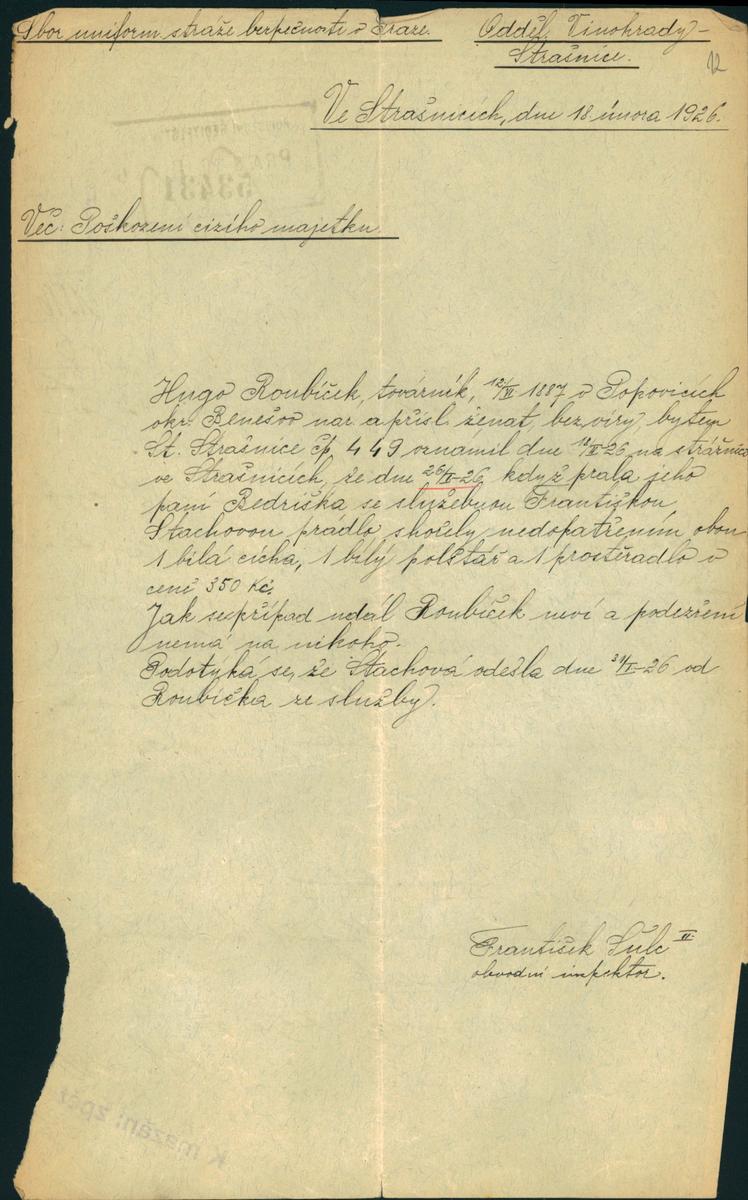 Sbor uniform. stráže bezpečnosti v Praze. Odděl. Vinohrady-
Strašnice.
12
Ve Strašnicích, dne 18. února 1926.
53431
Věc: Poškození cizího majetku.
Hugo Roubíček, továrník, 12/VI 1887 v Popovicích
okr. Benešov nar. a přísl. ženat, bez víry, bytem
St. Strašnice čp. 449 oznámil dne 18/II-26 na strážnici
ve Strašnicích, že dne 26/I-26, když prala jeho
paní Bedřiška se služebnou Františkou
Stachovou prádlo shořely nedopatřením obou
1 bílá cícha, 1 bílý polštář a 1 prostěradlo v
ceně 350 Kč.
Jak se případ udál Roubíček neví a podezření
nemá na nikoho.
Podotýká se, že Stachová odešla dne 31/I-26 od
Roubíčka ze služby.
František Šulc II.
obvodní inspektor.
K mazání zpět